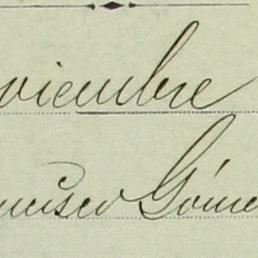 oviembre
ncisco Góme